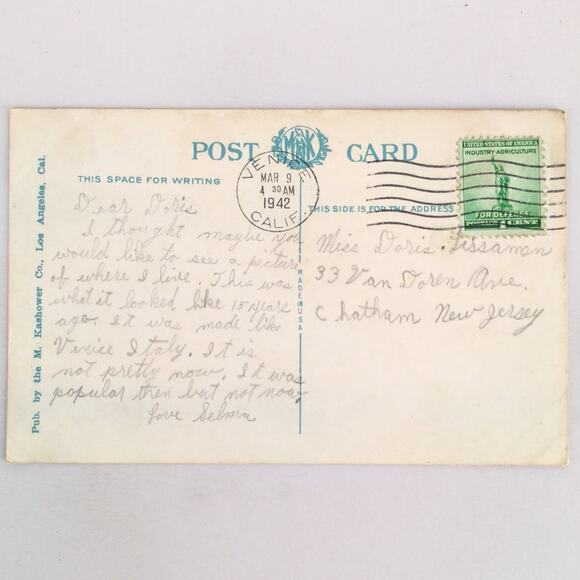 POST CARD
M K
THIS SPACE FOR WRITING
THIS SIDE IS FOR THE ADDRESS
VENICE
MAR 9
4 30 AM
1942
CALIF.
UNITED STATES OF AMERICA
INDUSTRY-AGRICULTURE
FOR DEFENSE
POSTAGE 1 CENT
Pub. by the M. Kashower Co., Los Angeles, Cal.
MADE IN USA
Dear Doris
I thought maybe you
would like to see a picture
of where I live. This was
what it looked like 15 years
ago. It was made like
Venice Italy. It is
not pretty now. It was
popular then but not now,
Love Selma
Miss Doris
33 Van Doren Ave.
Chatham New Jersey